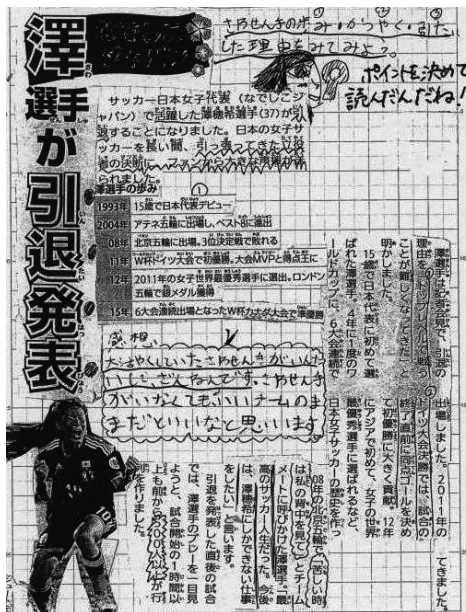 澤選手が引退発表
さわせん手の歩み、かつやく、引たい
した理由をみてみよう。
ポイントを決めて
読んだんだね!
サッカー日本女子代表(なでしこジ
ャパン)で活躍した澤穂希選手(37)が引
退することになりました。日本の女子サ
ッカーを長い間、引っ張ってきた
られました。
澤選手の歩み
1993年 15歳で日本代表デビュー
2004年 アテネ五輪に出場し、ベスト8に進出
08年 北京五輪に出場。3位決定戦で敗れる
11年 W杯ドイツ大会で初優勝。大会MVPと得点王に
12年 2011年の女子世界最優秀選手に選出。ロンドン
五輪で銀メダル獲得
15年 6大会連続出場となったW杯カナダ大会で準優勝
感想
いし、ざんねんです。さわせん手
がいなくても、いいチームのま
まだといいなと思います
澤選手は記者会見で、引退の
理由を「トップレベルで戦う
ことが難しくなってきた」と
明かしました。
15歳で日本代表に初めて選
ばれた澤選手。4年に1度のワ
ールドカップに、6大会連続で
出場しました。2011年の
ドイツ大会決勝では、試合の
終了直前に同点ゴールを決め
て初優勝に大きく貢献。12年
にアジアで初めて、女子の世界
最優秀選手に選ばれるなど、
日本女子サッカーの歴史を作っ
てきました。
08年の北京五輪で「苦しい時
は私の背中を見て」とチーム
メートに呼びかけた澤選手。「最
高のサッカー人生だった。今後
は、澤穂希にしかできない仕事
をしたい」と言います。
引退を発表した直後の試合
では、澤選手のプレーを一目見
ようと、試合開始の1時間以
上も前から
列を作りました。